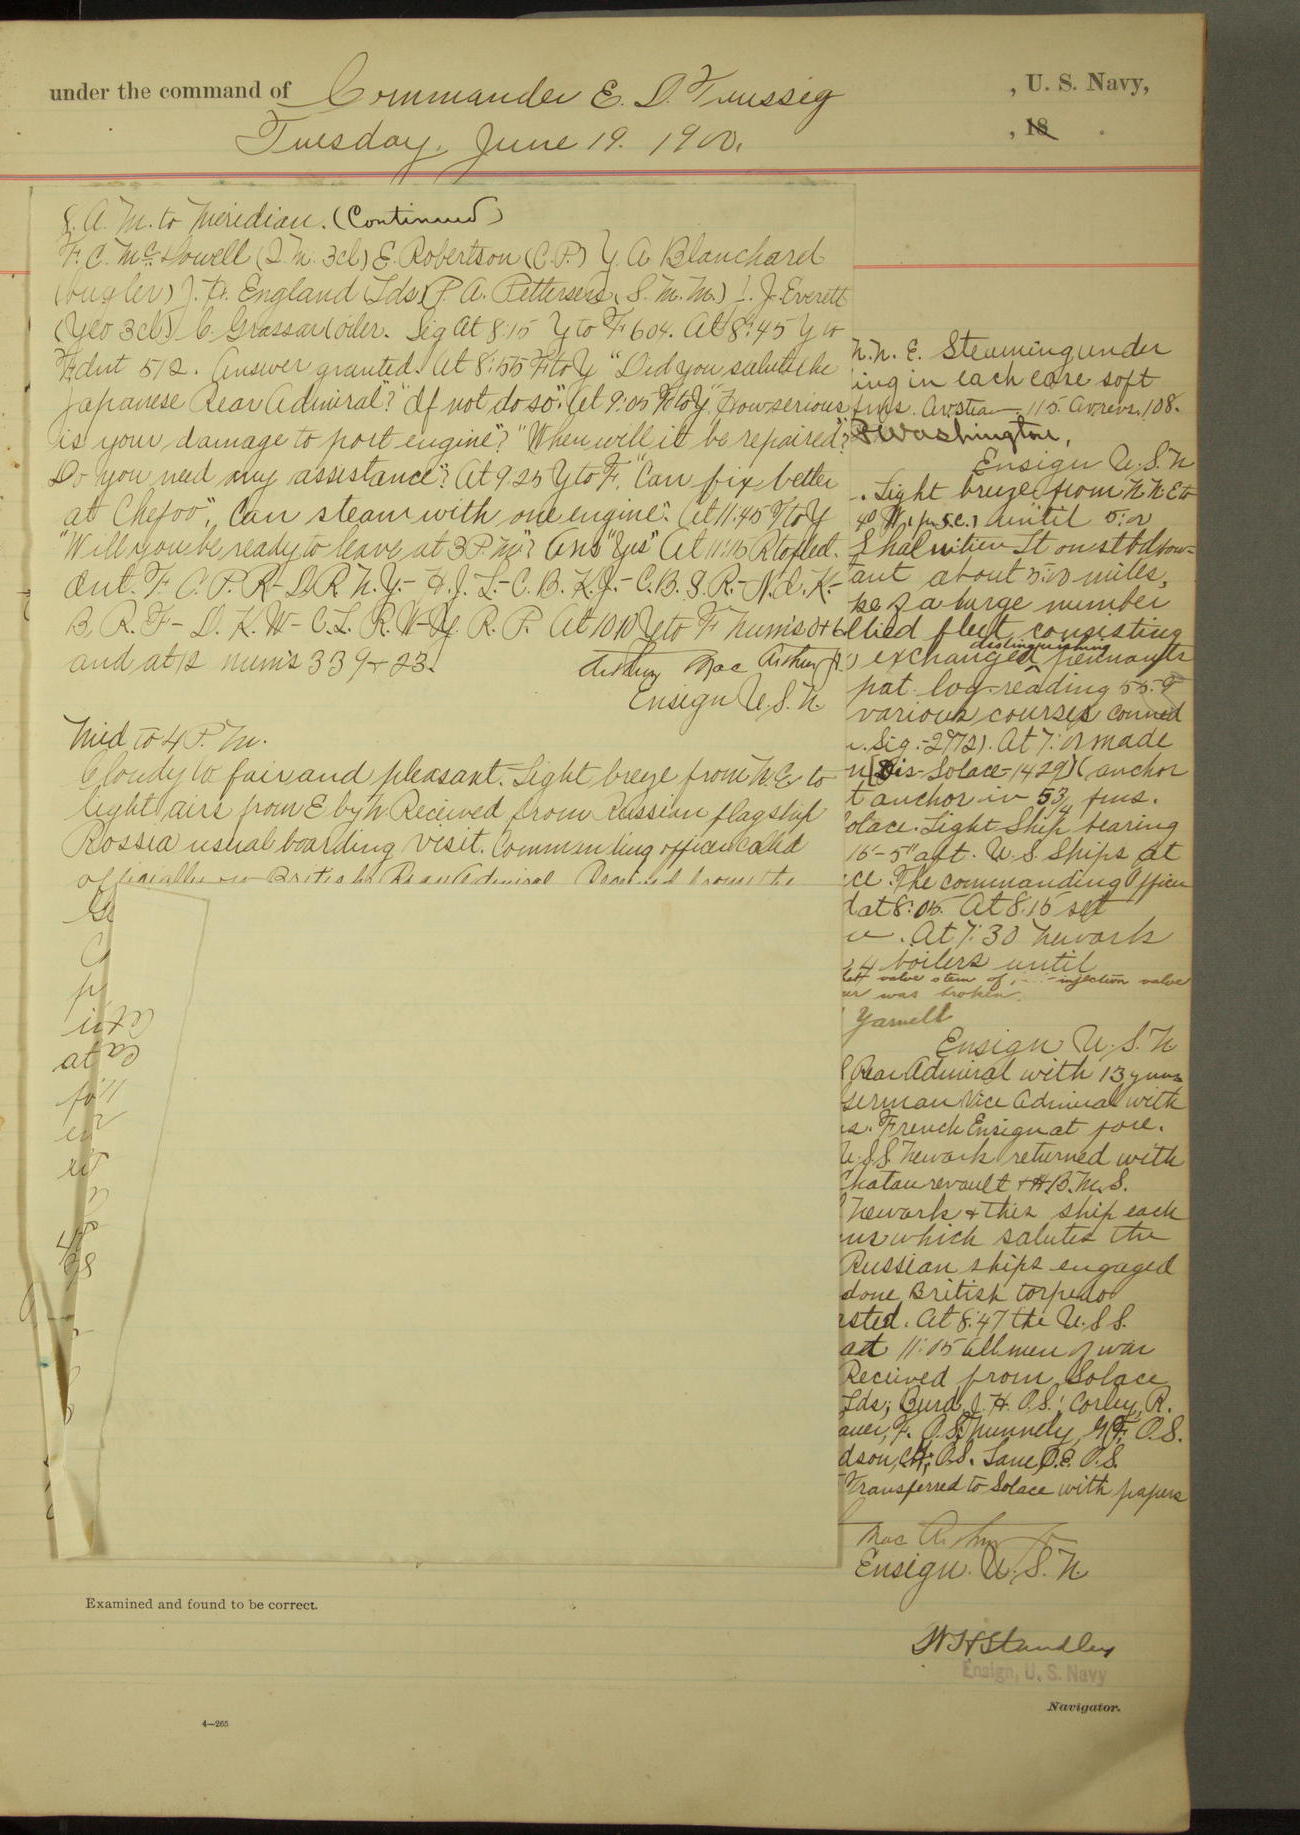 under the command of Commander E. D. Taussig, U. S. Navy,
Tuesday, June 19. 1900. , 18
8. A. M. to Meridian. (Continued)
F. C. McDowell (Q.M. 3cl) E. Robertson (C.P.) Y. A. Blanchard
(bugler) J. H. England (Lds) P. A. Petterson (S. M. M.) J. Everett
(Yeo 3cl.) C. Grassau (oiler. Sig At 8:15 Y to F 604. At 8:45 Y to
F dnt 512. Answer granted. At 8:55 F to Y "Did you salute the
Japanese Rear Admiral"? "If not do so". At 9:05 F to Y "How serious
is your damage to port engine"? "When will it be repaired"?
Do you need any assistance"? At 9.25 Y to F. "Can fix better
at Chefoo", "Can steam with one engine". At 11:45 F to Y
"Will you be ready to leave at 3 P. M."? Ans "Yes" At 11:15 R to fleet.
dnt. F. C. P. R- D.R. N.Y.- H. J. L.- C. B. K. J.- C. B. S. R.- N. d. K.-
B. R. F- D. K. W- C. L. R. W- Y. R. P. At 10 10 Y to F Num's
and at 12 num's 339 + 23.
Arthur Mac Arthur Jr.
Ensign U. S. N.
Mid to 4 P. M.
Cloudy to fair and pleasant. Light breeze from N. E. to
light airs from E by N Received from Russian flagship
Rossia usual boarding visit. Commanding officer called
officially on British Rear Admiral Received from the
N. N. E. Steaming under
ing in each case soft
fms. Av. steam 115. Av. revs. 108.
Washington,
Ensign U. S. N
. Light breeze from N N E to
until 5:0
on stbd bow
about miles,
a large number
llied fleet consisting
exchanged distinguishing pennants
pat. log reading 55.9
various courses conned
Sig.-2972). At 7: made
is-Solace-1429) (anchor
t anchor in 5 3/4 fms.
olace. Light Ship bearing
15-5" aft. U. S. Ships at
ce. The commanding Officer
d at 8:05. At 8:15 set
. At 7:30 Newark
4 boilers until
valve stem of injection valve
was broken.
Yarnell
Ensign U. S. N
Rear Admiral with 13 guns
German Vice Admiral with
s. French Ensign at fore.
U. S. S. Newark returned with
Chataurevault + H. B. M. S.
Newark + this ship each
us which salutes the
Russian ships engaged
done, British torpedo
sted. At 8:47 the U. S. S.
at 11:05 all men of war
Received from Solace
Lds; Burd, J. H. O.S.; Corley, R.
auer, F. O.S. Nunnely, G. F. O.S.
dson, O.S. Lane, O.S.
Transferred to Solace with papers
Mac Arthur Jr
Ensign. U. S. N.
Examined and found to be correct.
W H Standley
Ensign, U. S. Navy
Navigator.
4—265